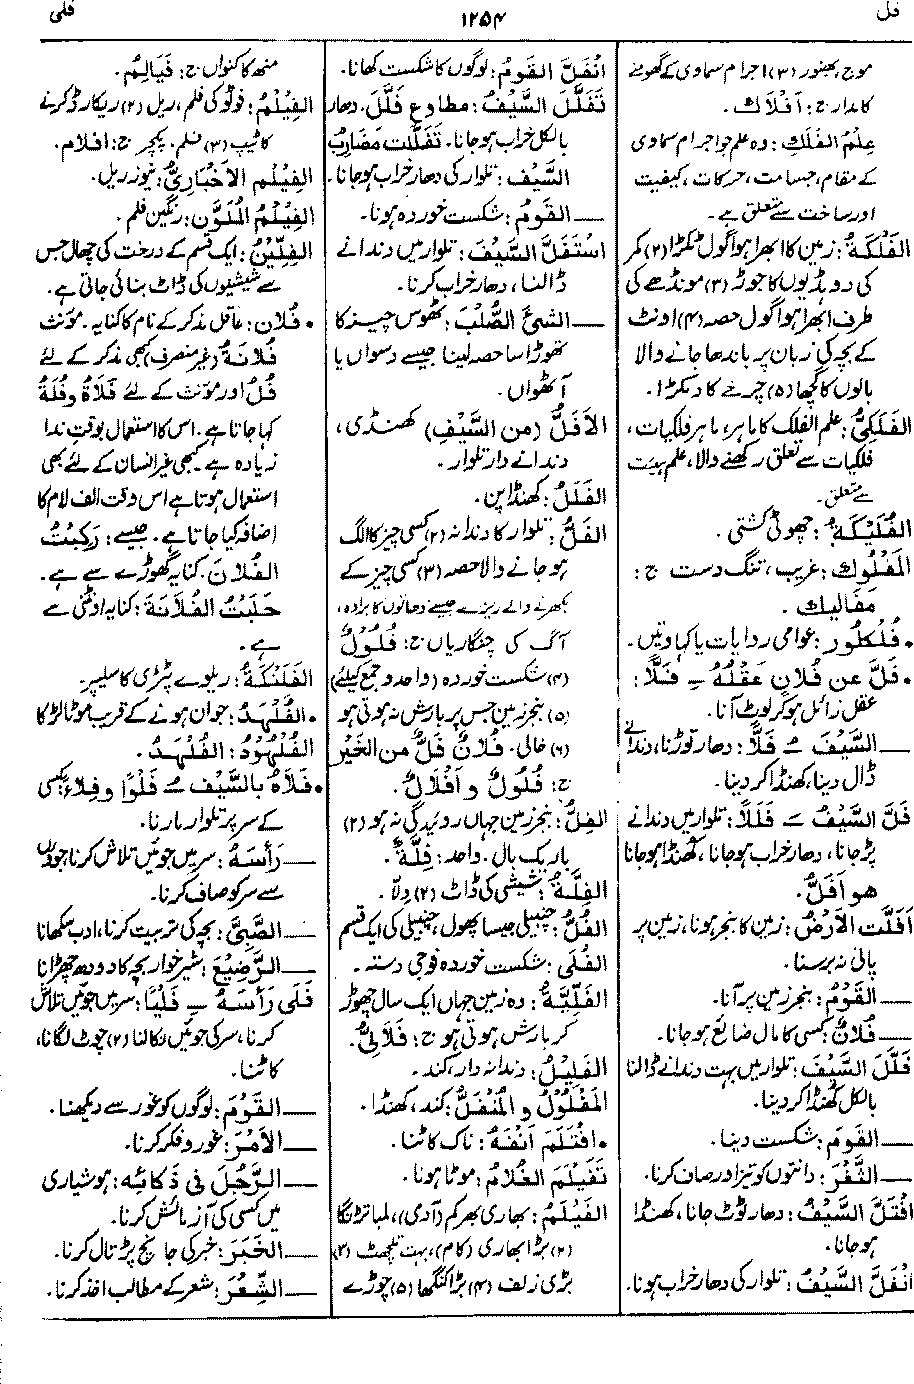 فل
۱۲۵۴
فلی
موج، بھنور (۳) اجرام سماوی کے گھومنے
کا مدار ج: أَفْلَاك۔
عِلْمُ الفَلَكِ: وہ علم جو اجرام سماوی
کے مقام، جسامت، حرکات، کیفیت
اور ساخت سے متعلق ہے۔
الفَلْكَةُ: زمین کا ابھرا ہوا گول ٹکڑا (۲) کمر
کی دو ہڈیوں کا جوڑ (۳) مونڈھے کی
طرف ابھرا ہوا گول حصہ (۴) اونٹ
کے بچہ کی زبان پر باندھا جانے والا
بالوں کا گچھا (۵) چرخے کا دمکڑا۔
الفَلَكِيُّ: علم الفلک کا ماہر، ماہر فلکیات،
فلکیات سے تعلق رکھنے والا، علم ہیئت
سے متعلق۔
الفُلَيْكَةُ: چھوٹی کشتی۔
المَفْلُوك: غریب، تنگ دست ج:
مَفَالِيك۔
• فُلْكُلُور: عوامی روایات یا کہاوتیں۔
• فَلَّ عن فُلانٍ عَقْلُهُ ــِ فَلًّا:
عقل زائل ہو کر لوٹ آنا۔
ــــ السَّيْفَ ــُ فَلًّا: دھار توڑنا، دندانے
ڈال دینا، کھنڈا کر دینا۔
فَلَّ السَّيْفُ ــَ فَلَلًا: تلوار میں دندانے
پڑ جانا، دھار خراب ہو جانا، کھنڈا ہو جانا
هو أَفَلُّ۔
أَفَلَّت الأَرْضُ: زمین کا بنجر ہونا، زمین پر
پانی نہ برسنا۔
ــــ القَوْمُ: بنجر زمین پر آنا۔
ــــ فُلَانٌ: کسی کا مال ضائع ہو جانا۔
فَلَّلَ السَّيْفَ: تلوار میں بہت دندانے ڈالنا
بالکل کھنڈا کر دینا۔
ــــ القومَ: شکست دینا۔
ــــ الثَّغْرَ: دانتوں کو تیز اور صاف کرنا۔
افْتَلَّ السَّيْفُ: دھار ٹوٹ جانا، کھنڈا
ہو جانا۔
انْفَلَّ السَّيْفُ: تلوار کی دھار خراب ہونا۔
انْفَلَّ القَوْمُ: لوگوں کا شکست کھانا۔
تَفَلَّلَ السَّيْفُ: مطاوع فَلَّلَ۔ دھار
بالکل خراب ہو جانا۔ تَفَلَّلَت مَضَارِبُ
السَّيْفِ: تلوار کی دھار خراب ہو جانا۔
ــــ القَوْمُ: شکست خوردہ ہونا۔
اسْتَفَلَّ السَّيْفَ: تلوار میں دندانے
ڈالنا، دھار خراب کرنا۔
ــــ الشيءَ الصُّلْبَ: ٹھوس چیز کا
تھوڑا سا حصہ لینا جیسے دسواں یا
آٹھواں۔
الأَفَلُّ (من السَّيْفِ) کھنڈی،
دندانے دار تلوار۔
الفَلَلُ: کھنڈا پن۔
الفَلُّ: تلوار کا دندانہ (۲) کسی چیز کا الگ
ہو جانے والا حصہ (۳) کسی چیز کے
بکھرنے والے ریزے جیسے دھاتوں کا برادہ،
آگ کی چنگاریاں ج: فُلُولٌ
(۴) شکست خوردہ (واحد و جمع کیلئے)
(۵) بنجر زمین جس پر بارش نہ ہوتی ہو
(۶) خالی۔ فُلَانٌ فَلٌّ من الخَيْرِ
ج: فُلُولٌ و أَفْلَالٌ۔
الفِلُّ: بنجر زمین جہاں روئیدگی نہ ہو (۲)
باریک بال۔ واحد: فِلَّةٌ۔
الفِلَّةُ: شیشی کی ڈاٹ (۲) وِلّا۔
الفُلُّ: چنبیلی جیسا پھول، چنبیلی کی ایک قسم
الفُلَّى: شکست خوردہ فوجی دستہ۔
الفَلِّيَّةُ: وہ زمین جہاں ایک سال چھوڑ
کر بارش ہوتی ہو ج: فَلَالِيُّ۔
الفَلِيْلُ: دندانہ دار، کند۔
المَفْلُوْلُ و المُنْفَلُّ: کند، کھنڈا۔
• افْتَلَمَ أَنْفَهُ: ناک کاٹنا۔
تَفَيْلَمَ الغُلَامُ: موٹا ہونا۔
الفَيْلَمُ: بھاری بھرکم (آدمی)، لمبا تڑنگا
(۲) بڑا بھاری (کام)، بہت تلچھٹ (۳)
بڑی زلف (۴) بڑا کنگھا (۵) چوڑے
منھ کا کنواں ج: فَيَالِمُ۔
الفِيْلْمُ: فوٹو کی فلم، ریل (۲) ریکارڈ کرنے
کا ٹیپ (۳) فلم۔ پکچر ج: افلام۔
الفِيْلْمُ الأَخْبَارِيُّ: نیوز ریل۔
الفِيْلْمُ المُلَوَّن: رنگین فلم۔
الفِلِّيْنُ: ایک قسم کے درخت کی چھال جس
سے شیشیوں کی ڈاٹ بنائی جاتی ہے۔
• فُلَان: عاقل مذکر کے نام کا کنایہ۔ مؤنث
فُلَانَةُ (غیر منصرف) کبھی مذکر کے لئے
فُلُ اور مؤنث کے لئے فُلَاةُ وفُلَةُ
کہا جاتا ہے۔ اس کا استعمال بوقت ندا
زیادہ ہے۔ کبھی غیر انسان کے لئے بھی
استعمال ہوتا ہے اس وقت الف لام کا
اضافہ کیا جاتا ہے۔ جیسے: رَكِبْتُ
الفُلَانَ۔ کنایہ گھوڑے سے ہے۔
حَلَبْتُ الفُلَانَةَ: کنایہ اونٹنی سے
ہے۔
الفَلَنْكَةُ: ریلوے پٹڑی کا سلیپر۔
• الفُلْهُدُ: جوان ہونے کے قریب موٹا لڑکا
الفُلْهُوْدُ: الفُلْهُدُ۔
• فَلَاهُ بِالسَّيْفِ ــُ فَلْوًا وفِلَاءً: کسی
کے سر پر تلوار مارنا۔
ــــ رَأْسَهُ: سر میں جوئیں تلاش کرنا، جووں
سے سر کو صاف کرنا۔
ــــ الصَّبِيَّ: بچہ کی تربیت کرنا، ادب سکھانا
ــــ الرَّضِيْعَ: شیر خوار بچہ کا دودھ چھڑانا
فَلَى رَأْسَهُ ــِ فَلْيًا: سر میں جوئیں تلاش
کرنا، سر کی جوئیں نکالنا (۲) چوٹ لگانا،
کاٹنا۔
ــــ القَوْمَ: لوگوں کو غور سے دیکھنا۔
ــــ الأَمْرَ: غور و فکر کرنا۔
ــــ الرَّجُلَ فِي ذَكَائِهِ: ہوشیاری
میں کسی کی آزمائش کرنا۔
ــــ الخَبَرَ: خبر کی جانچ پڑتال کرنا۔
ــــ الشِّعْرَ: شعر کے مطالب اخذ کرنا۔